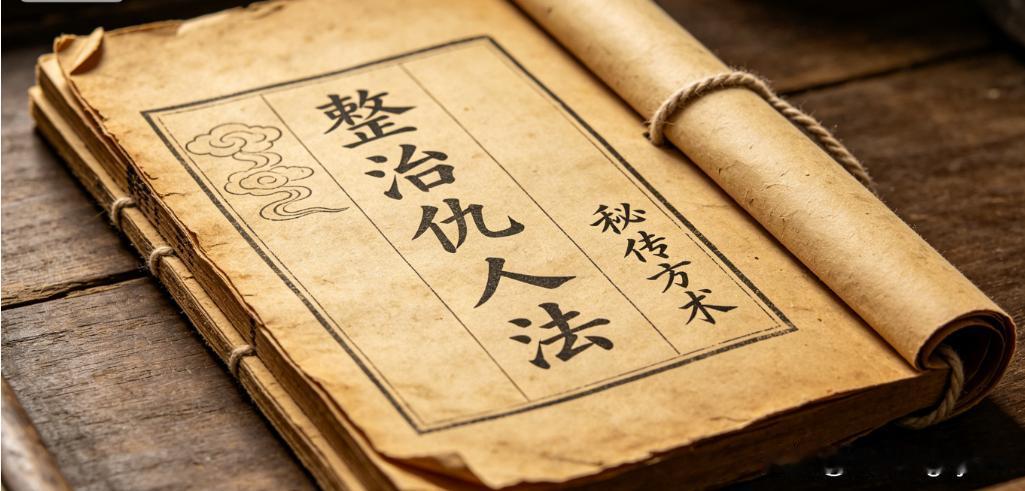 整治仇人法
秘传方术